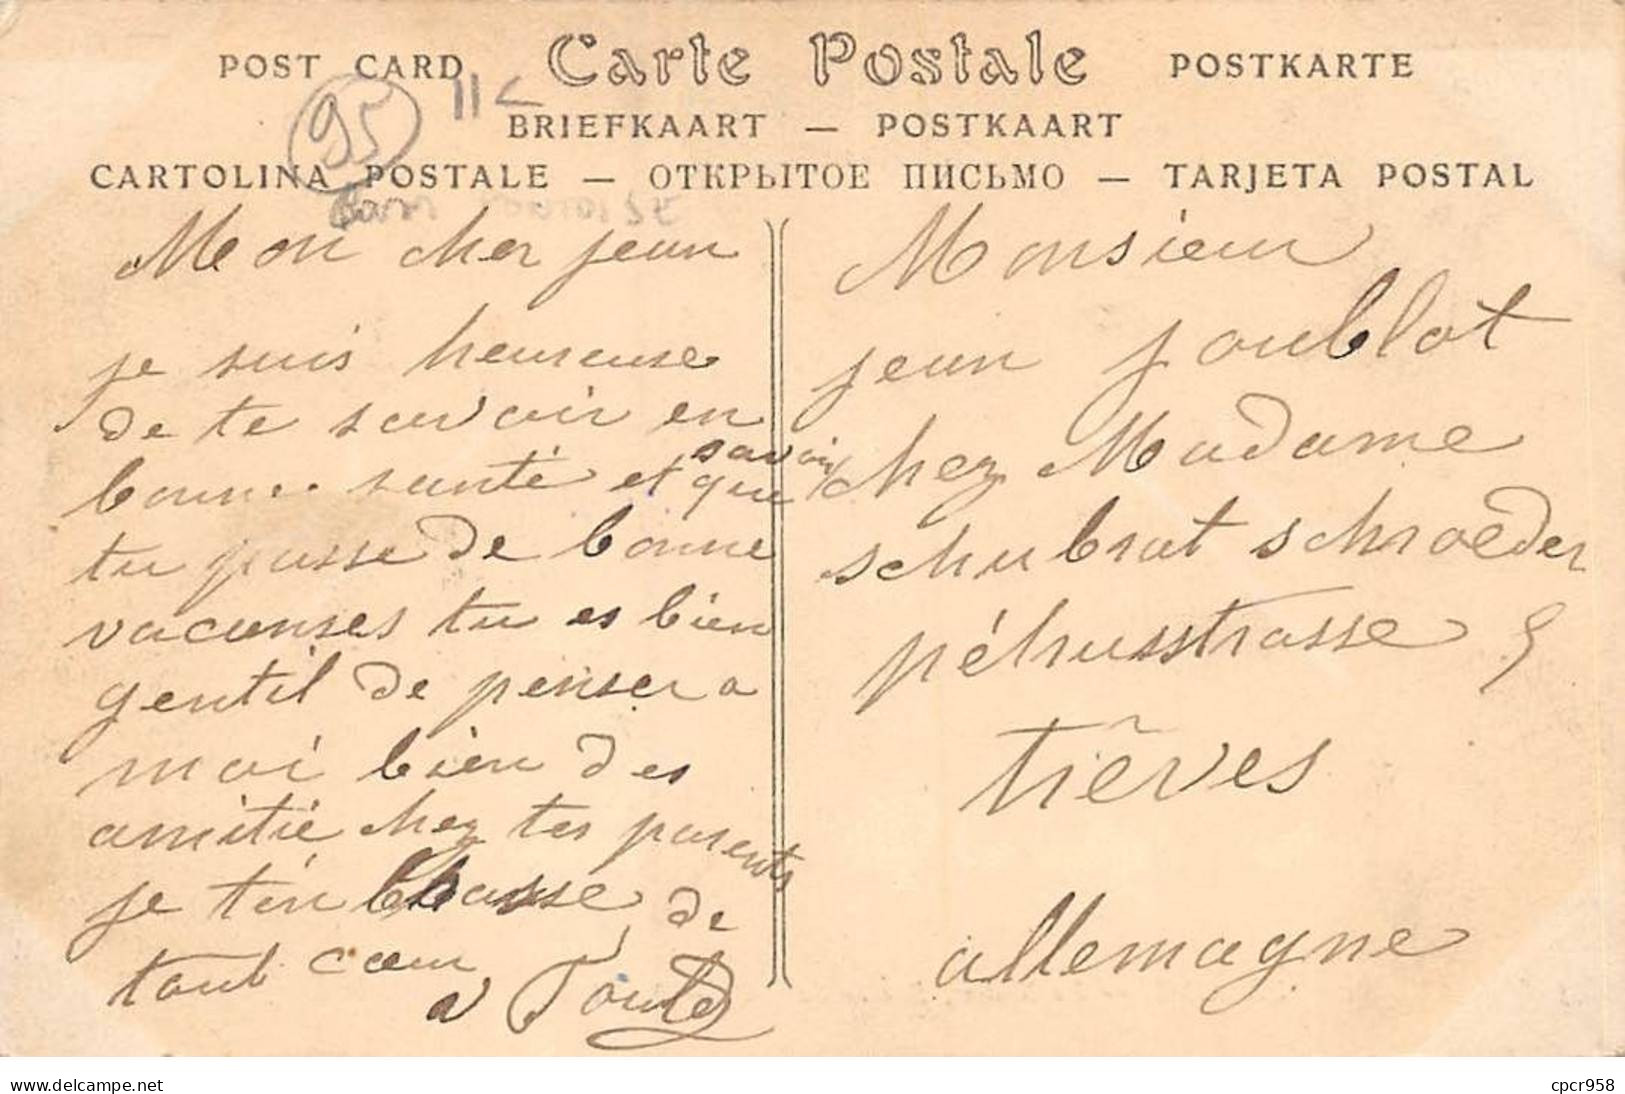 POST CARD Carte Postale POSTKARTE
95 11 <
BRIEFKAART — POSTKAART
CARTOLINA POSTALE — ОТКРЫТОЕ ПИСЬМО — TARJETA POSTAL
Mon cher jean
je suis heureuse
de te savoir en
bonne santé et savoir que
tu passe de bonne
vacenses tu es bien
gentil de penser a
moi bien des
amitié chez tes parents
je t'en brasse de
tout cœur
Monsieur
jean joublot
chez Madame
schubrat schroeder
pétrusstrasse 9
trêves
allemagne
www.delcampe.net
cpcr958